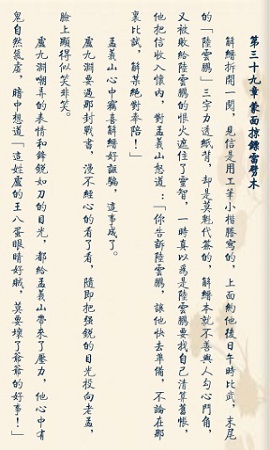 第三十九章 蒙面掠鏢雷劈木
解縉折開一閱，見信是用工筆小楷謄寫的，上面約他後日午時比武，末尾
的「陸雲鵬」三字力透紙背，却是莫甦代簽的，解縉本就不善與人勾心鬥角，
又被敗給陸雲鵬的恨火遮住了靈智，一時真以為是陸雲鵬要找自己清算舊帳，
他把信收入懷內，對孟義山怒道：「你告訴陸雲鵬，讓他快去準備，不論在那
裏比試，解某絕對奉陪！」
孟義山心中竊喜解縉好誆騙，這事成了。
盧九淵要過那封戰書，漫不經心的看了看，隨即把強銳的目光投向老孟，
臉上顯得似笑非笑。
盧九淵嘲弄的表情和鋒銳如刀的目光，都給孟義山帶來了壓力，他心中有
鬼自然氣虛，暗中想道「這姓盧的王八蛋眼睛好賊，莫要壞了爺爺的好事！」